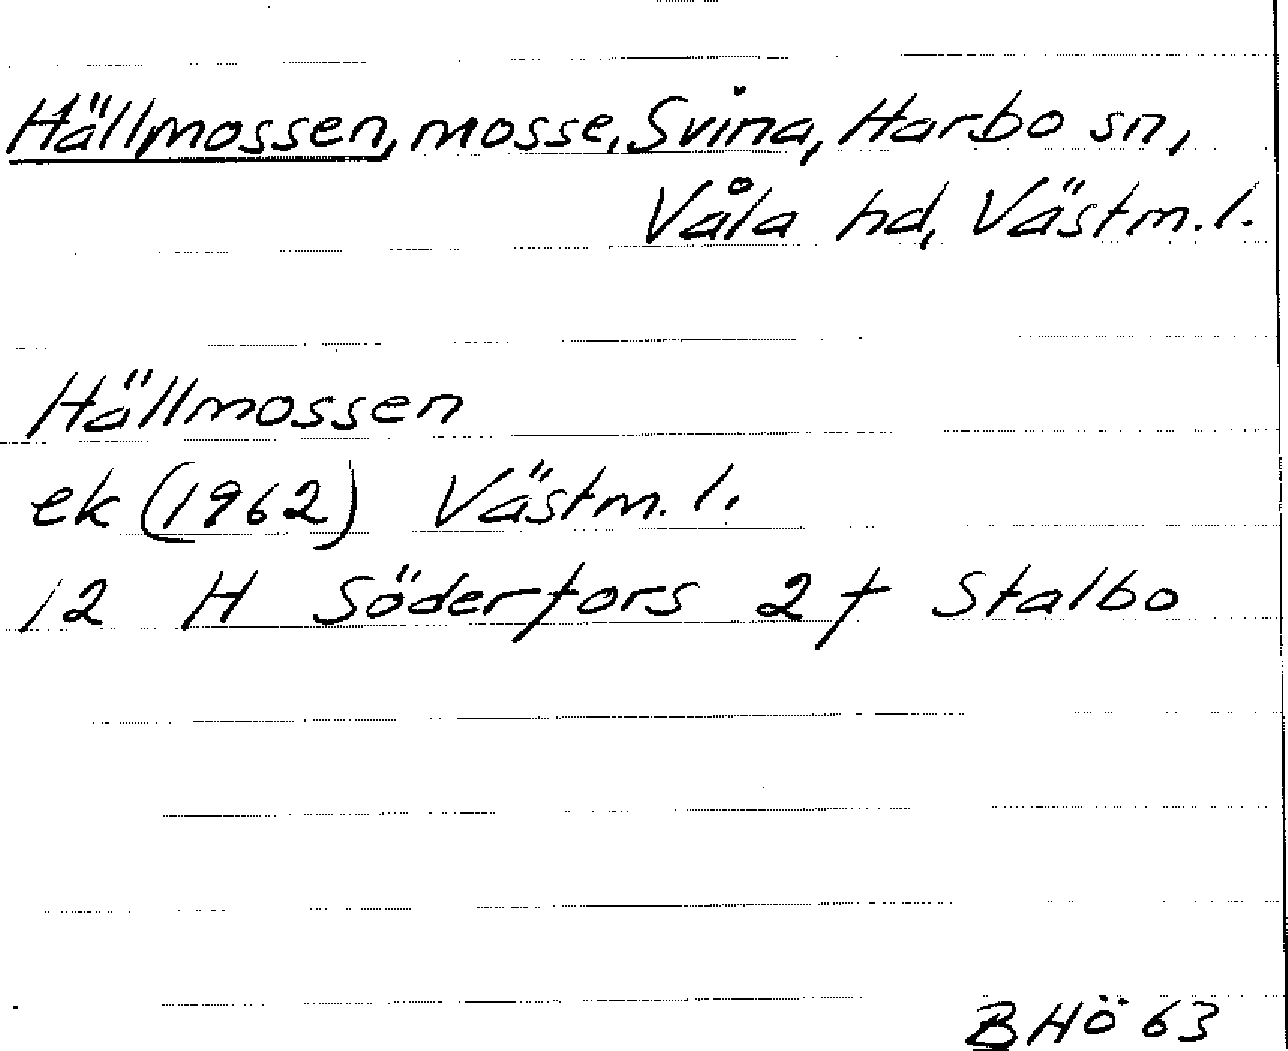 Hällmossen, mosse, Svina, Harbo sn,
Våla hd, Västm. l.
Hällmossen
ek (1962) Västm. l.
12 H Söderfors 2 f Stalbo
BHÖ 63